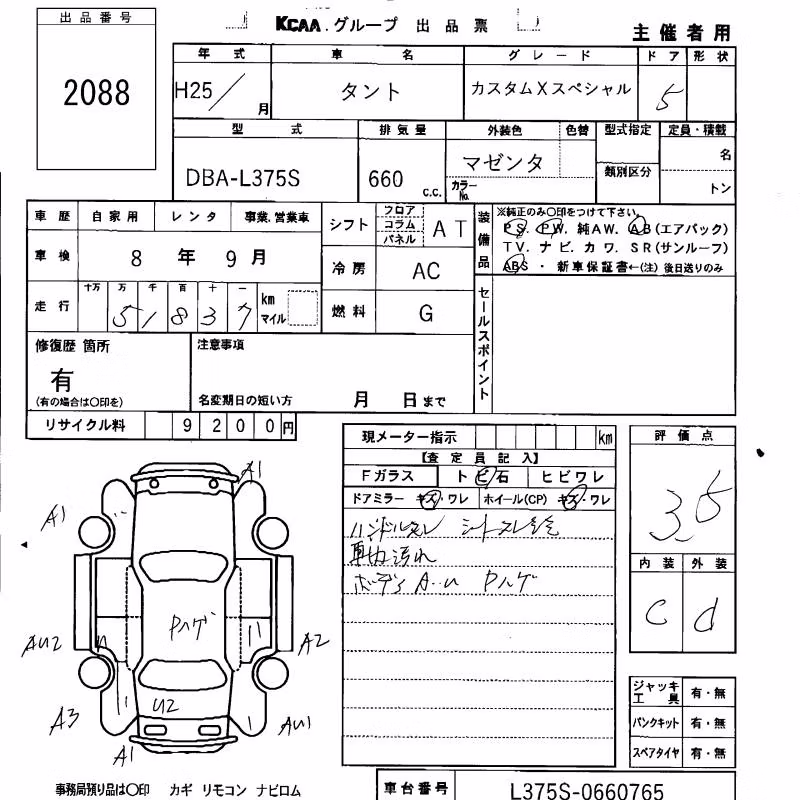 出品番号
2088
KCAA.グループ 出品票
主催者用
年式 車名 グレード ドア 形状
H25/ 月 タント カスタムXスペシャル 5
型式 排気量 外装色 色替 型式指定 定員・積載
DBA-L375S 660 c.c. マゼンタ カラーNo. 類別区分 名
トン
車歴 自家用 レンタ 事業.営業車
シフト フロア コラム パネル AT
装備品
※純正のみ○印をつけて下さい。
PS. PW. 純AW. AB(エアバック)
TV. ナビ. カワ. SR(サンルーフ)
ABS ・ 新車保証書←(注) 後日送りのみ
車検 8年9月
冷房 AC
走行 十万 万 千 百 十 一
51837 km マイル
燃料 G
セールスポイント
修復歴 箇所
有
(有の場合は○印を)
注意事項
名変期日の短い方 月 日まで
リサイクル料 9200円
現メーター指示 km
【査定員記入】
Fガラス トビ石 ヒビワレ
ドアミラー キズ・ワレ ホイール(CP) キズ・ワレ
ハンドルスレ
車内汚れ
ボディ A..u Pハゲ
評価点
3.5
内装 外装
C d
A1
A1
Pハゲ
AU2
A2
U2
A3
AU1
A1
ジャッキ工具 有・無
パンクキット 有・無
スペアタイヤ 有・無
事務局預り品は○印 カギ リモコン ナビロム
車台番号 L375S-0660765